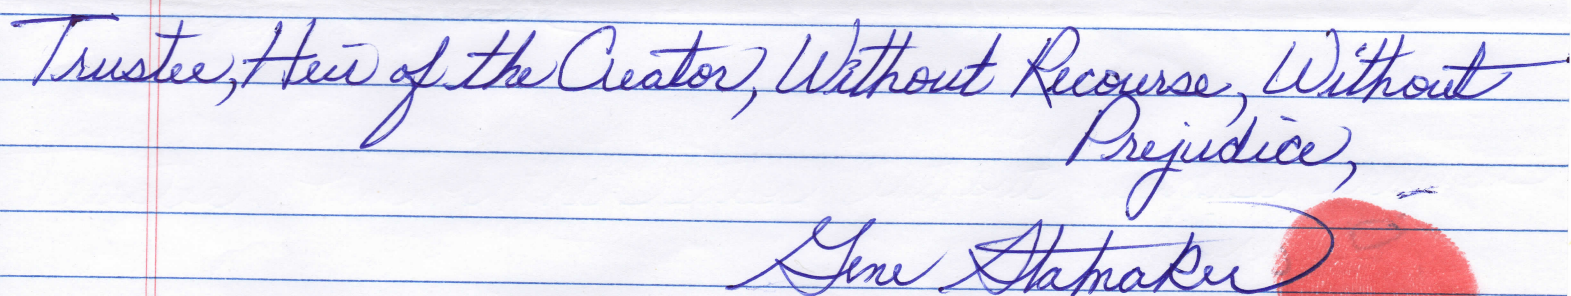 Trustee, Heir of the Creator, Without Recourse, Without
Prejudice,
Gene Stalnaker